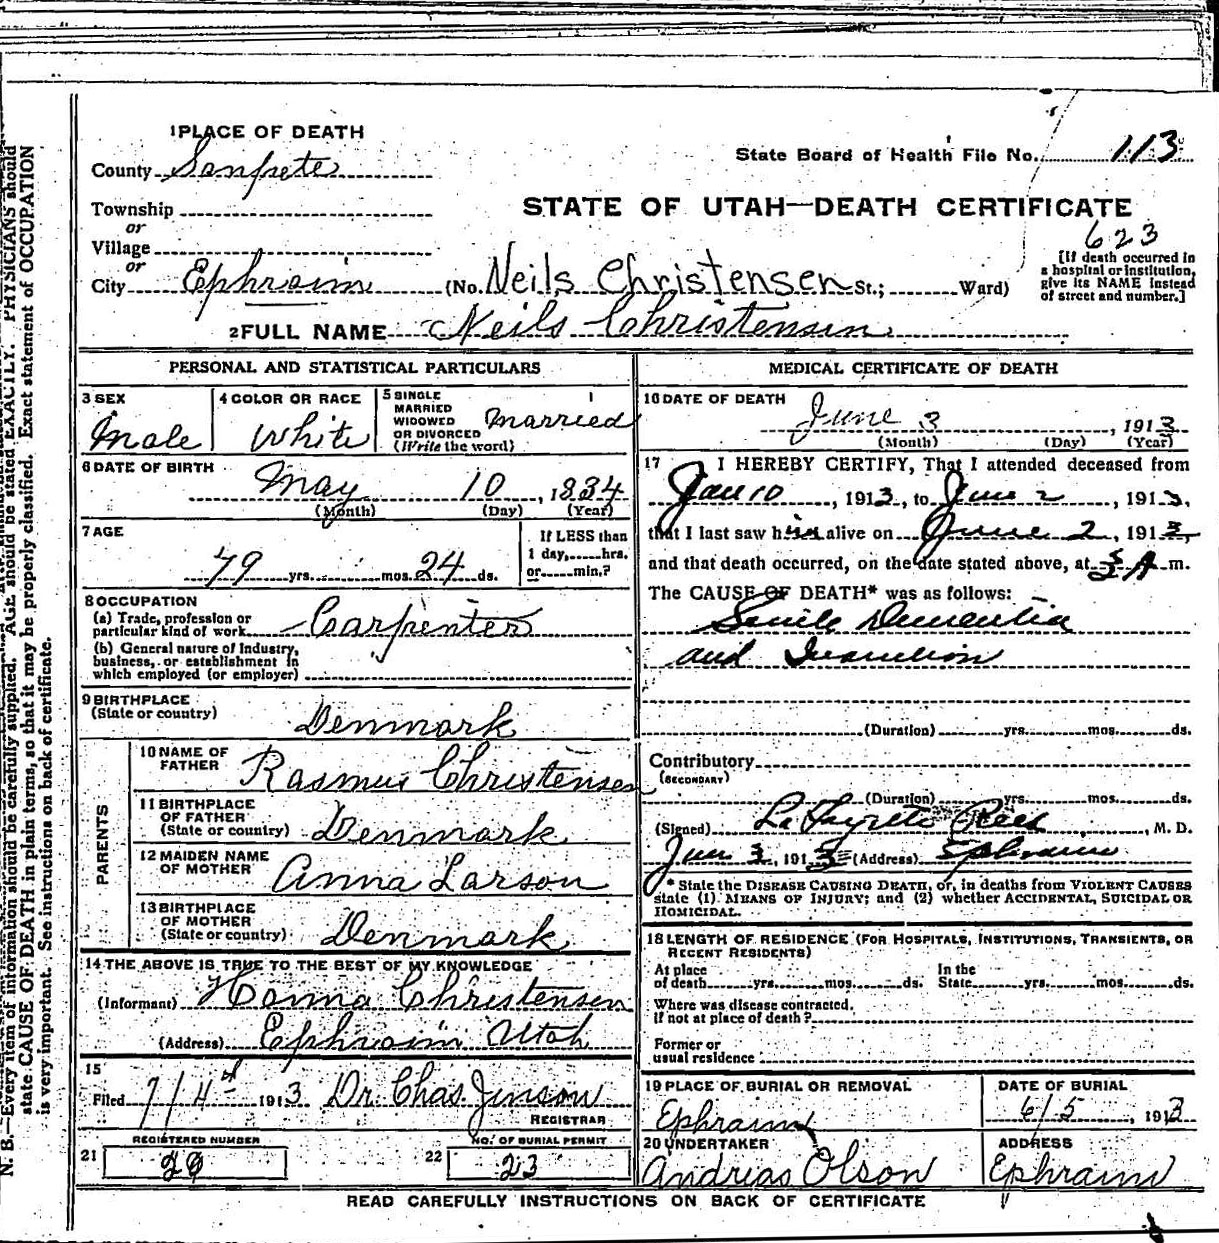 1 PLACE OF DEATH
County Sanpete
State Board of Health File No. 113
Township
or
STATE OF UTAH—DEATH CERTIFICATE
623
Village
or
City Ephraim (No. Neils Christensen St.; Ward)
[If death occurred in
a hospital or institution,
give its NAME instead
of street and number.]
2 FULL NAME Neils Christensen
PERSONAL AND STATISTICAL PARTICULARS
3 SEX
Male
4 COLOR OR RACE
White
5 SINGLE
MARRIED
WIDOWED
OR DIVORCED
(Write the word)
Married
6 DATE OF BIRTH
May 10, 1834
(Month) (Day) (Year)
7 AGE
79 yrs. mos. 24 ds.
If LESS than
1 day, hrs.
or min.?
8 OCCUPATION
(a) Trade, profession or
particular kind of work Carpenter
(b) General nature of industry,
business, or establishment in
which employed (or employer)
9 BIRTHPLACE
(State or country)
Denmark
PARENTS
10 NAME OF
FATHER Rasmus Christensen
11 BIRTHPLACE
OF FATHER
(State or country) Denmark
12 MAIDEN NAME
OF MOTHER Anna Larson
13 BIRTHPLACE
OF MOTHER
(State or country) Denmark
14 THE ABOVE IS TRUE TO THE BEST OF MY KNOWLEDGE
(Informant) Hanna Christensen
(Address) Ephraim Utah
15
Filed 7/4th 1913 Dr Chas. Jenson
REGISTRAR
21
REGISTERED NUMBER
29
22
NO. OF BURIAL PERMIT
23
MEDICAL CERTIFICATE OF DEATH
16 DATE OF DEATH
June 3, 1913
(Month) (Day) (Year)
17 I HEREBY CERTIFY, That I attended deceased from
Jan 10, 1913, to June 2, 1913,
that I last saw him alive on June 2, 1913,
and that death occurred, on the date stated above, at A m.
The CAUSE OF DEATH* was as follows:
Senile Dementia
and Inanition
(Duration) yrs. mos. ds.
Contributory
(SECONDARY)
(Duration) yrs. mos. ds.
(Signed) LaFayette Rees, M. D.
June 3, 1913 (Address) Ephraim
* State the DISEASE CAUSING DEATH, or, in deaths from VIOLENT CAUSES
state (1) MEANS OF INJURY; and (2) whether ACCIDENTAL, SUICIDAL OR
HOMICIDAL.
18 LENGTH OF RESIDENCE (FOR HOSPITALS, INSTITUTIONS, TRANSIENTS, OR
RECENT RESIDENTS)
At place
of death yrs. mos. ds.
In the
State yrs. mos. ds.
Where was disease contracted,
if not at place of death?
Former or
usual residence
19 PLACE OF BURIAL OR REMOVAL
Ephraim
DATE OF BURIAL
6/5, 1913
20 UNDERTAKER
Andrias Olson
ADDRESS
Ephraim
READ CAREFULLY INSTRUCTIONS ON BACK OF CERTIFICATE
N. B.—Every item of information should be carefully supplied. AGE should be stated EXACTLY. PHYSICIANS should
state CAUSE OF DEATH in plain terms, so that it may be properly classified. Exact statement of OCCUPATION
is very important. See instructions on back of certificate.